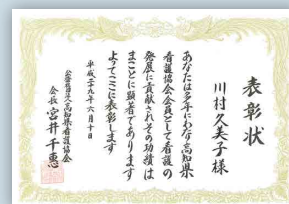 表彰状
川村久美子様
あなたは多年にわたり高知県
看護協会会員として看護の
発展に貢献されその功績は
まことに顕著であります
よってここに表彰します
平成二十九年六月十日
公益社団法人高知県看護協会
会長 宮井千恵